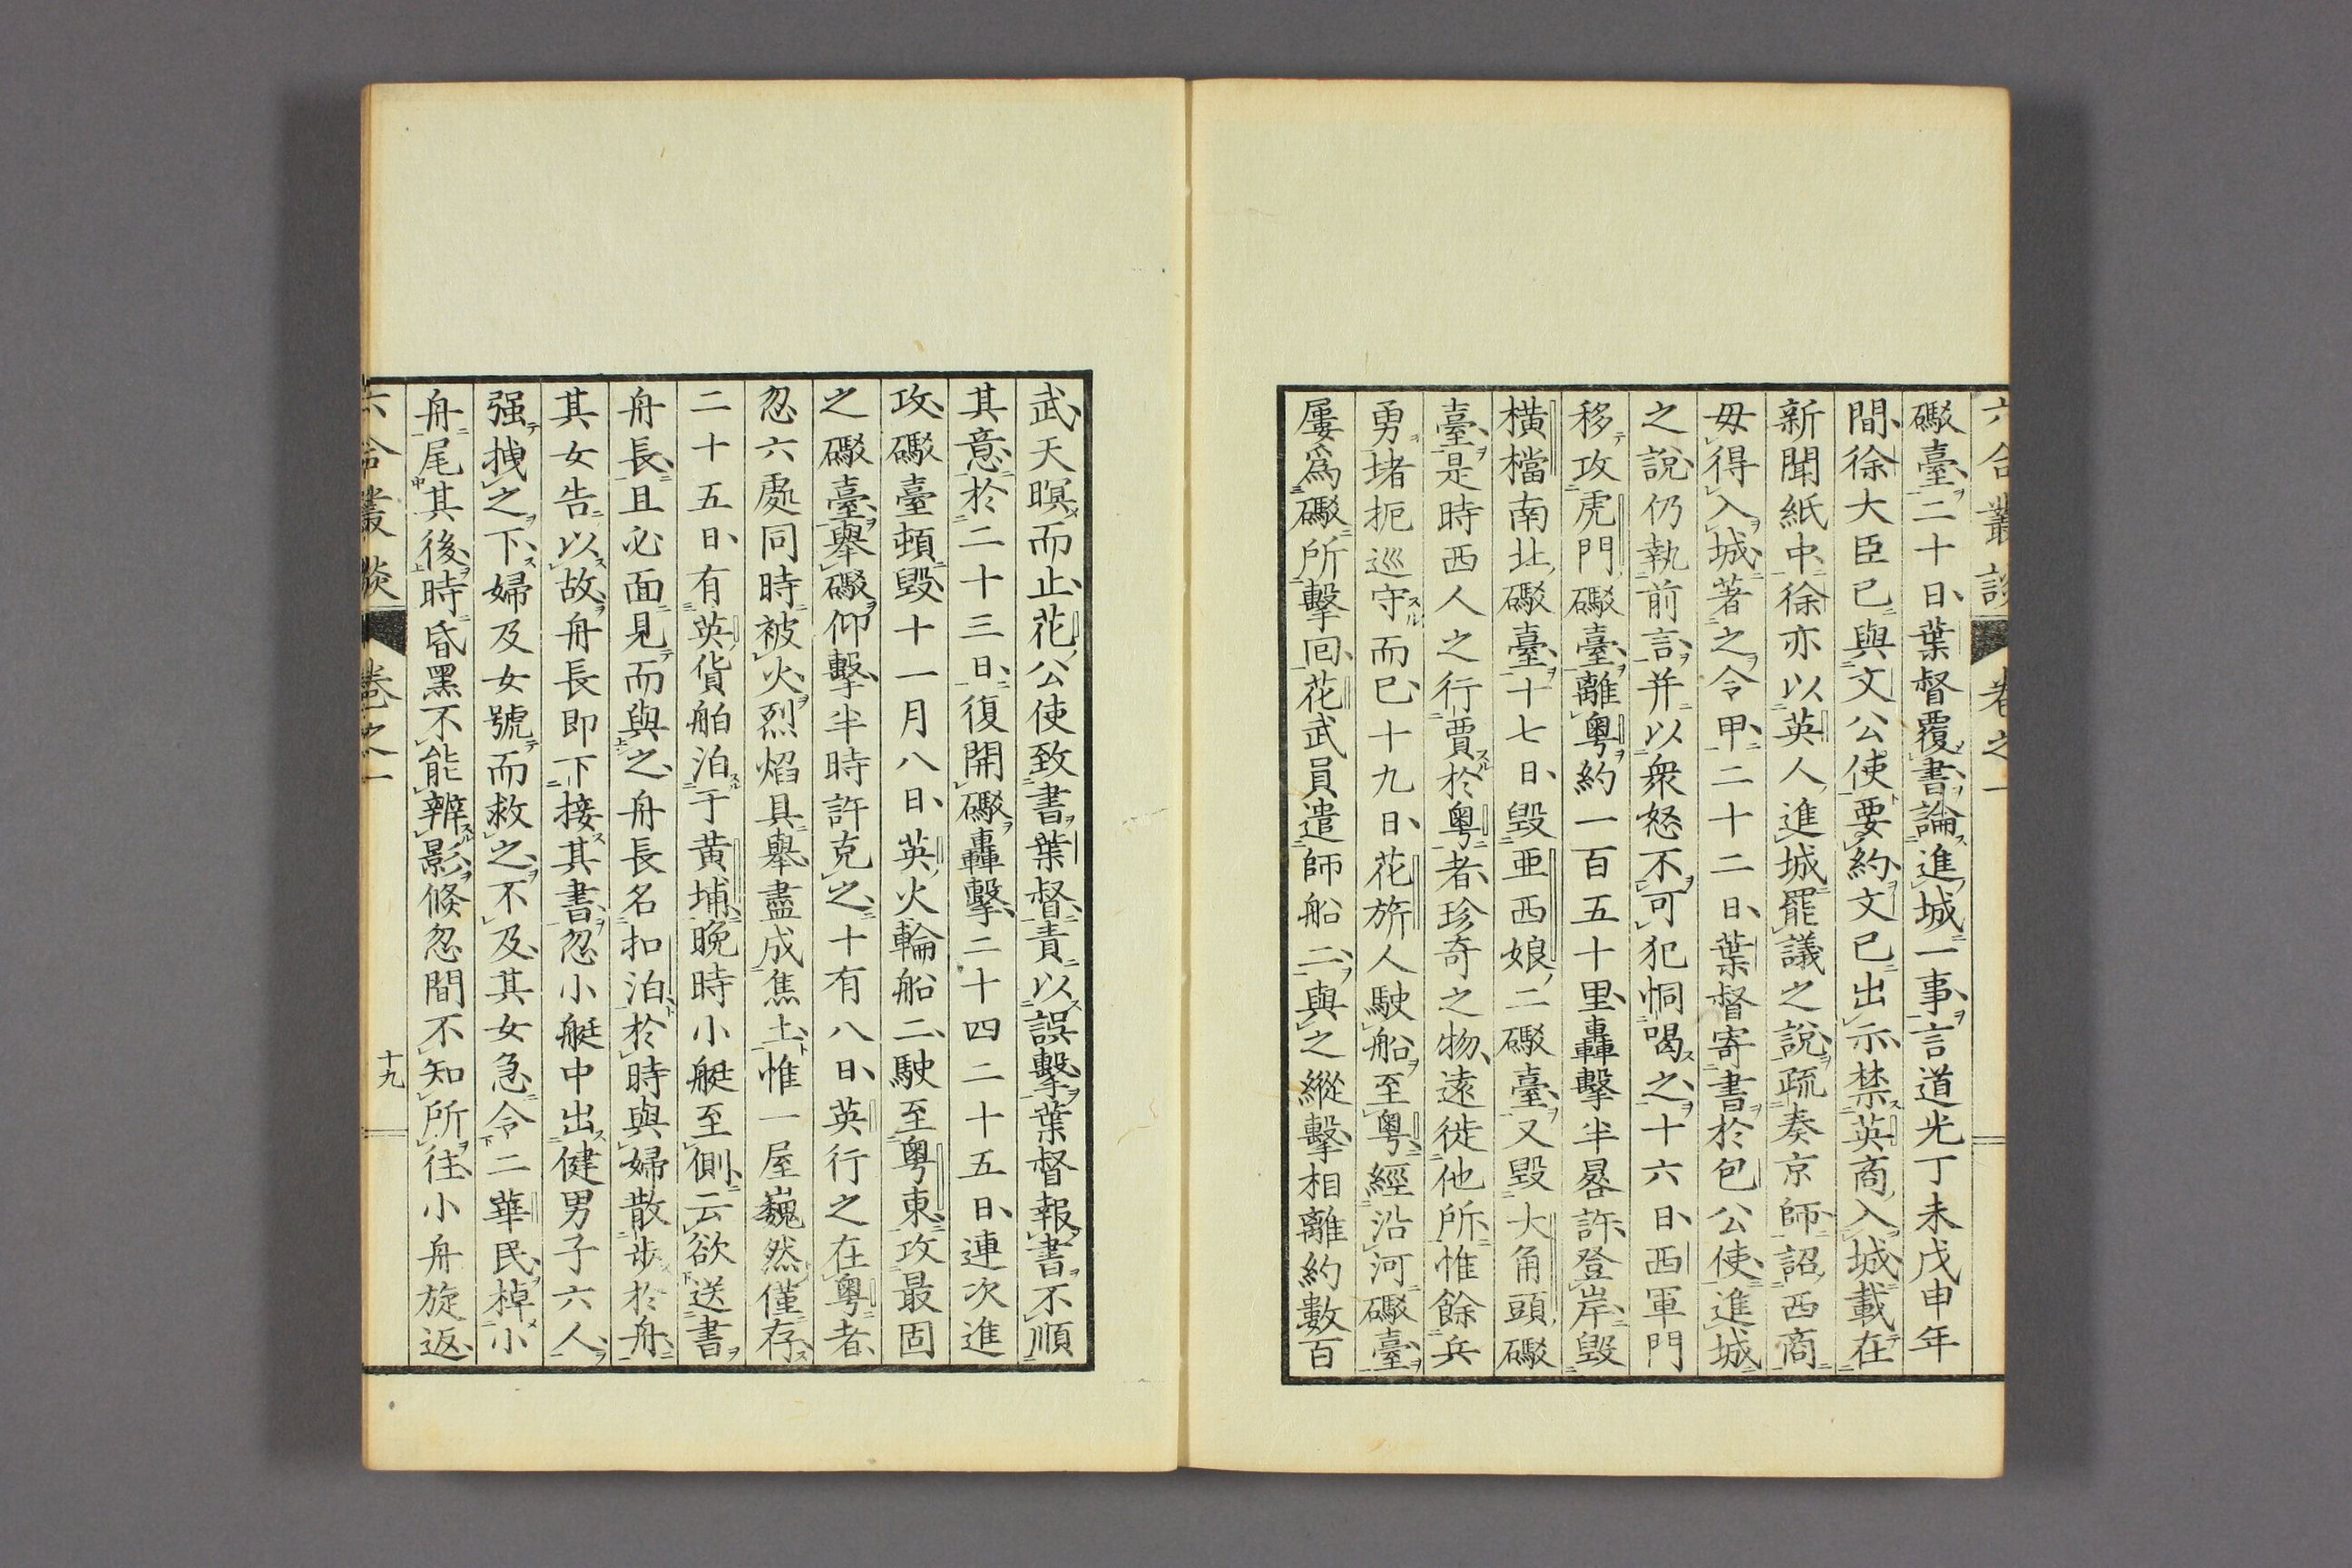 六合叢談 卷之一
礮臺二十日葉督覆書論進城一事言道光丁未戊申年
間徐大臣已與文公使要約文已出示禁英商入城載在
新聞紙中徐亦以英人進城罷議之說疏奏京師詔西商
毋得入城著之令甲二十二日葉督寄書於包公使進城
之說仍執前言并以衆怒不可犯恫喝之十六日西軍門
移攻虎門礮臺離粵約一百五十里轟擊半晷許登岸毀
橫檔南北礮臺十七日毀亜西娘二礮臺又毀大角頭礮
臺是時西人之行賈於粵者珍奇之物遠徙他所惟餘兵
勇堵扼巡守而已十九日花旂人駛船至粵經沿河礮臺
屢爲礮所擊回花武員遣師船二與之縱擊相離約數百
武天暝而止花公使致書葉督責以誤擊葉督報書不順
其意於二十三日復開礮轟擊二十四二十五日連次進
攻礮臺頓毀十一月八日英火輪船二駛至粵東攻最固
之礮臺舉礮仰擊半時許克之十有八日英行之在粵者
忽六處同時被火烈焰具舉盡成焦土惟一屋巍然僅存
二十五日有英貨舶泊于黄埔晩時小艇至側云欲送書
舟長且必面見而與之舟長名扣泊於時與婦散步於舟
其女告以故舟長即下接其書忽小艇中出健男子六人
强拽之下婦及女號而救之不及其女急令二華民棹小
舟尾其後時昏黑不能辨影倏忽間不知所往小舟旋返
六合叢談 卷之一 十九